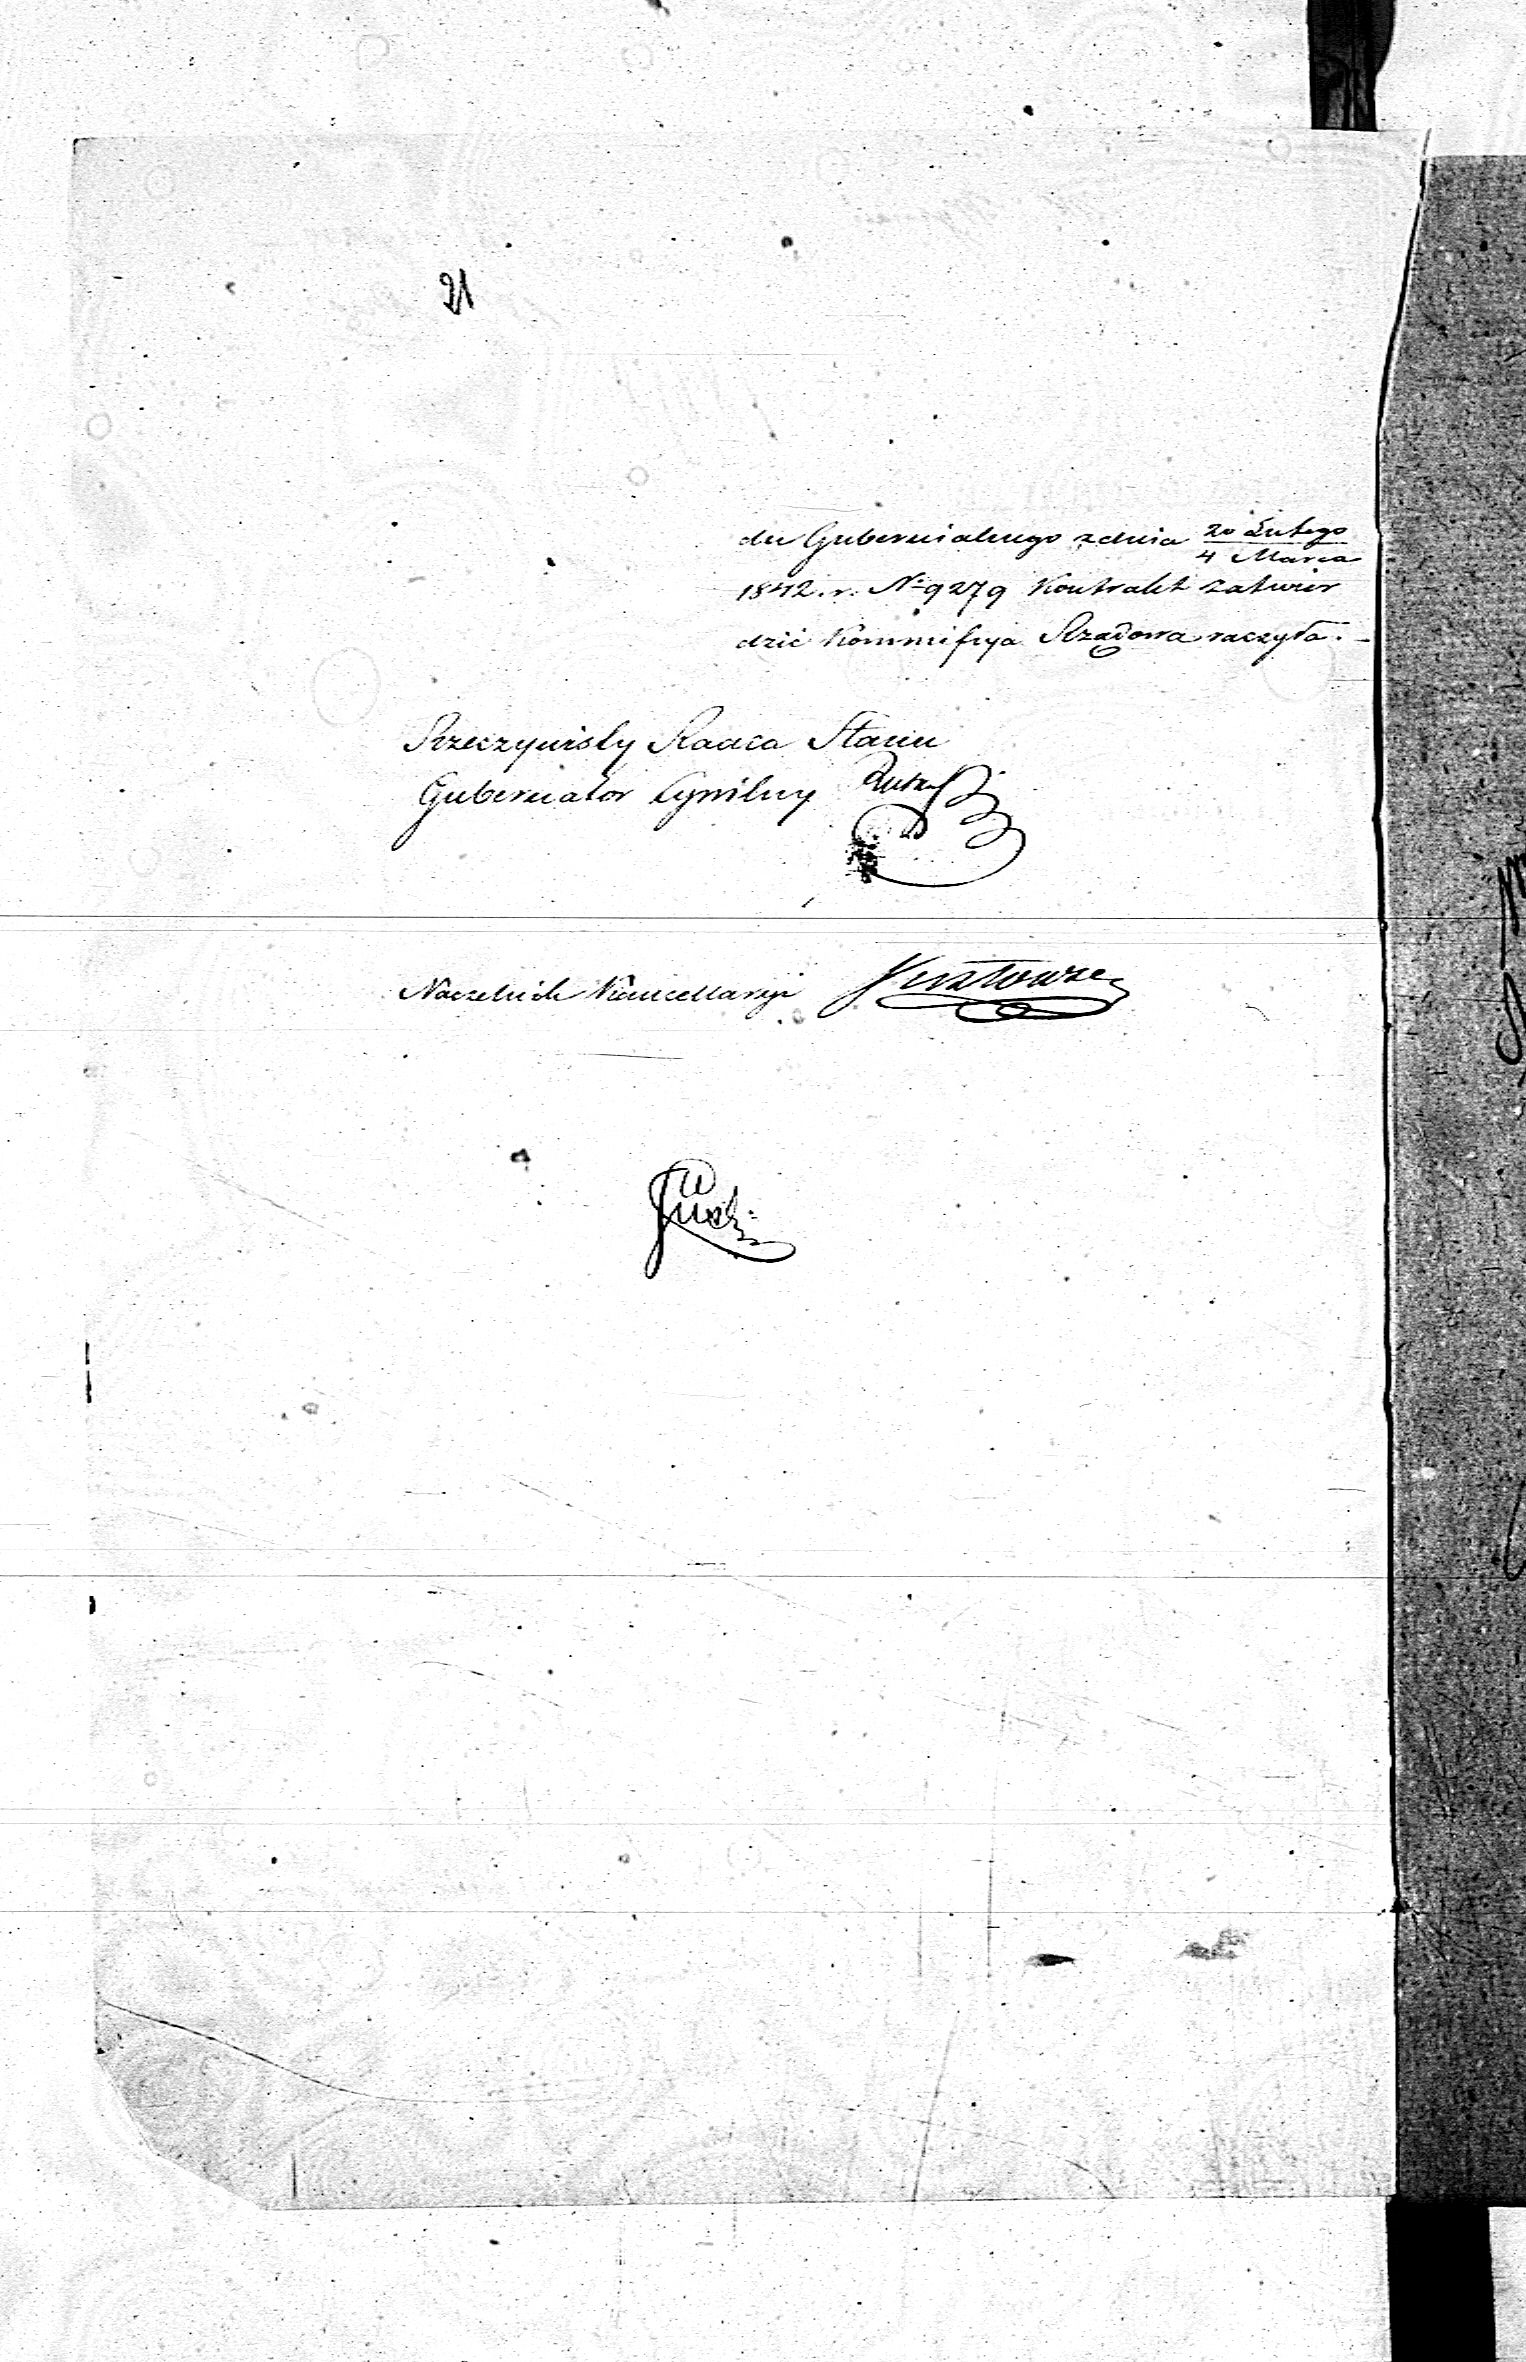 21
du Gubernialnego z dnia 20 Lutego / 4 Marca
1842. r. No 9279 Kontrakt zatwier
dzić Kommissya Rządowa raczyła. -
Rzeczywisty Radca Stanu
Gubernator Cywilny
Naczelnik Kancellaryi